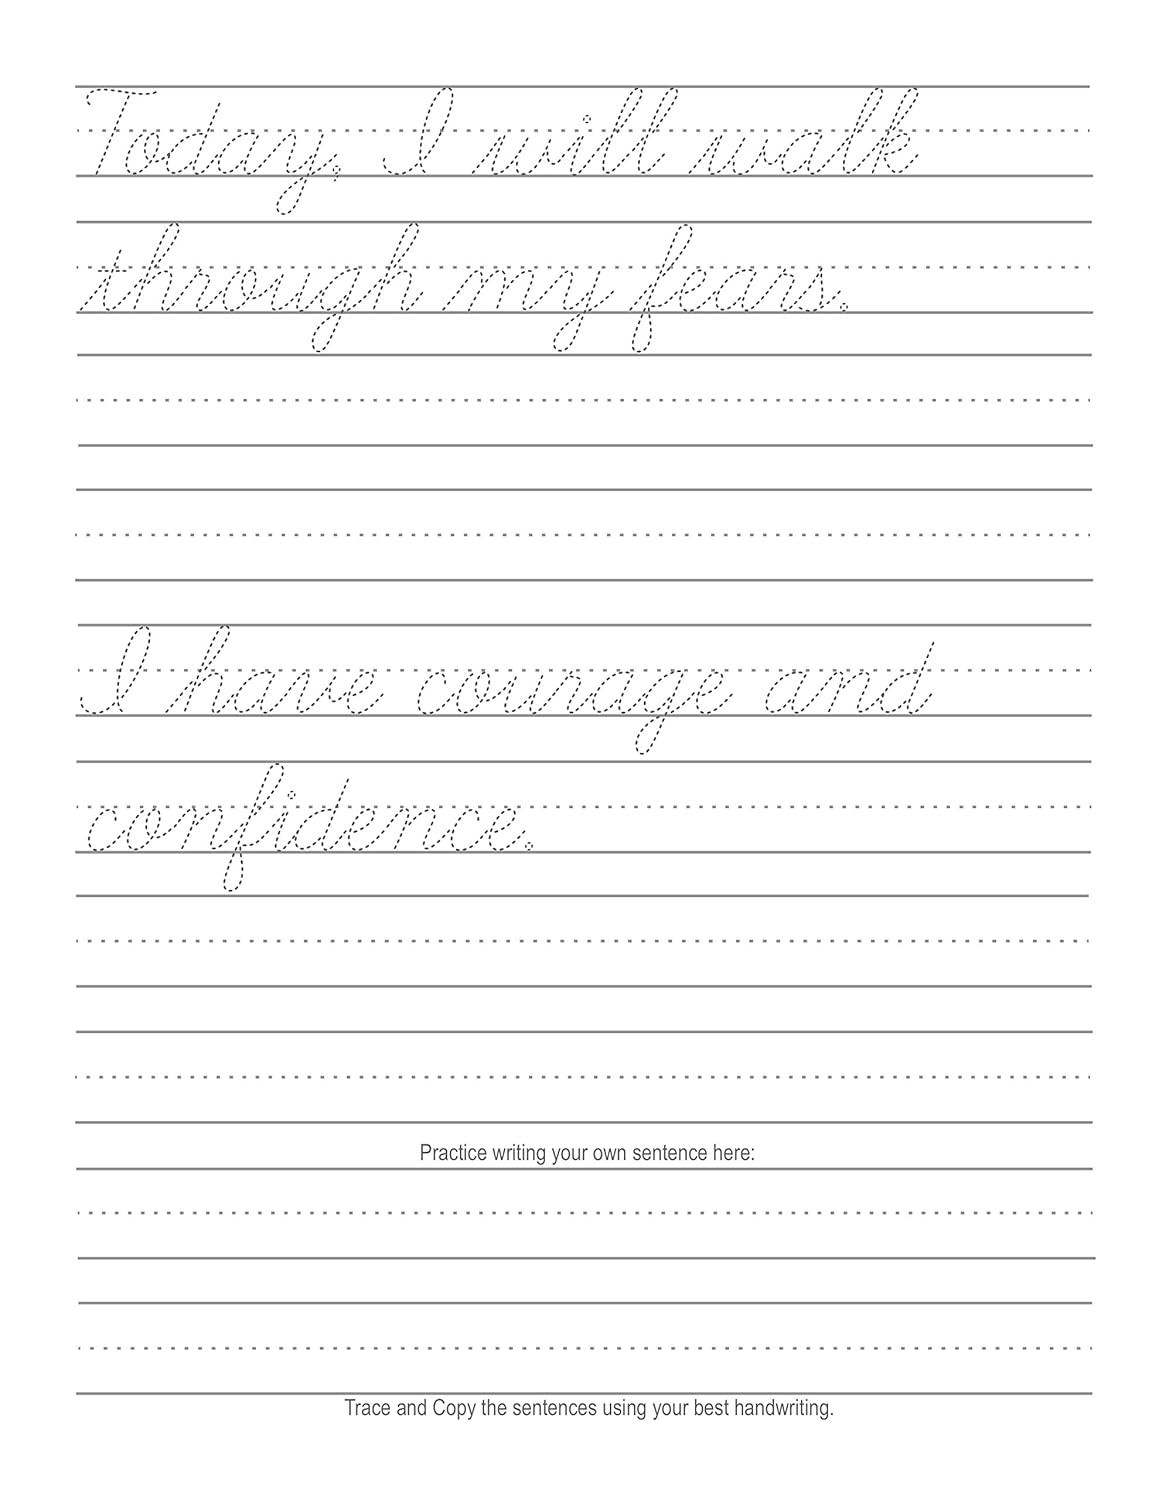 Today, I will walk
through my fears.
I have courage and
confidence.
Practice writing your own sentence here:
Trace and Copy the sentences using your best handwriting.